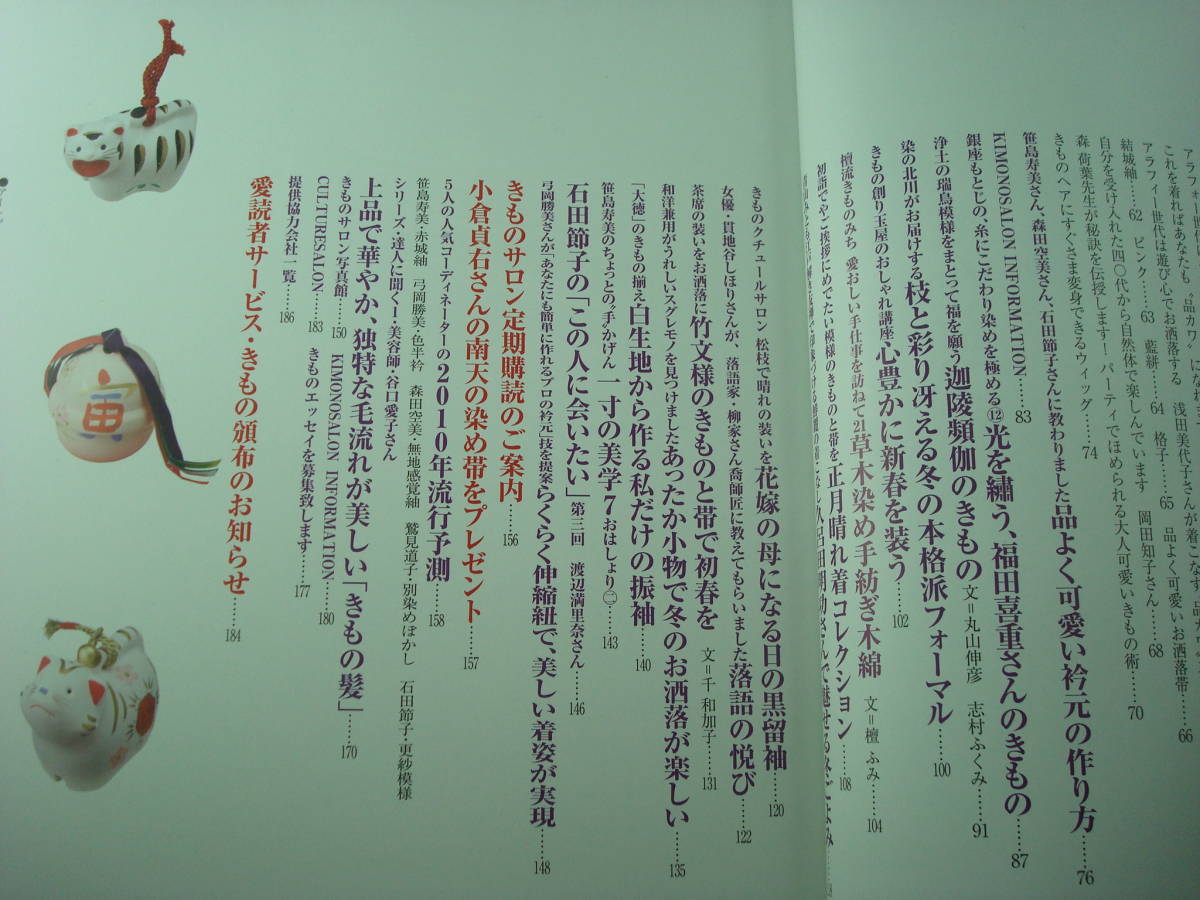 これを着ればあなたも〝品カワ〟
アラフィー世代は遊び心でお洒落する 浅田美代子さんが着こなす
結城紬……62 ピンク……63 藍絣……64 格子……65 品よく可愛いお洒落帯……66
自分を受け入れた四〇代から自然体で楽しんでいます 岡田知子さん……68
森 荷葉先生が秘訣を伝授します! パーティでほめられる大人可愛いきもの術……70
きものヘアにすぐさま変身できるウィッグ……74
笹島寿美さん、森田空美さん、石田節子さんに教わりました品よく可愛い衿元の作り方……76
KIMONOSALON INFORMATION……83
銀座もとじの、糸にこだわり染めを極める⑫光を繡う、福田喜重さんのきもの……87
浄土の瑞鳥模様をまとって福を願う迦陵頻伽のきもの 文=丸山伸彦 志村ふくみ……91
染の北川がお届けする枝と彩り冴える冬の本格派フォーマル……100
きもの創り玉屋のおしゃれ講座心豊かに新春を装う……102
檀流きものみち 愛おしい手仕事を訪ねて21草木染め手紡ぎ木綿 文=檀 ふみ……104
初詣でやご挨拶にめでたい模様のきものと帯を正月晴れ着コレクション……108
きものクチュールサロン 松枝で晴れの装いを花嫁の母になる日の黒留袖……120
女優・貫地谷しほりさんが、落語家・柳家さん喬師匠に教えてもらいました落語の悦び……122
茶席の装いをお洒落に竹文様のきものと帯で初春を 文=千 和加子……131
和洋兼用がうれしいスグレモノを見つけましたあったか小物で冬のお洒落が楽しい……135
「大徳」のきもの揃え白生地から作る私だけの振袖……140
笹島寿美のちょっとの〝手〟かげん 一寸の美学7おはしょり㊁……143
石田節子の「この人に会いたい」第三回 渡辺満里奈さん……146
弓岡勝美さんが「あなたにも簡単に作れるプロの衿元」技を提案らくらく伸縮紐で、美しい着姿が実現……148
きものサロン定期購読のご案内……156
小倉貞右さんの南天の染め帯をプレゼント……157
5人の人気コーディネーターの2010年流行予測……158
笹島寿美・赤城紬 弓岡勝美・色半衿 森田空美・無地感覚紬 鷲見道子・別染めぼかし 石田節子・更紗模様
シリーズ・達人に聞く1・美容師・谷口愛子さん
上品で華やか、独特な毛流れが美しい「きもの髪」……170
きものサロン写真館……150 KIMONOSALON INFORMATION……180
CULTURESALON……183 きものエッセイを募集致します……177
提供協力会社一覧……186
愛読者サービス・きもの頒布のお知らせ……184
寅